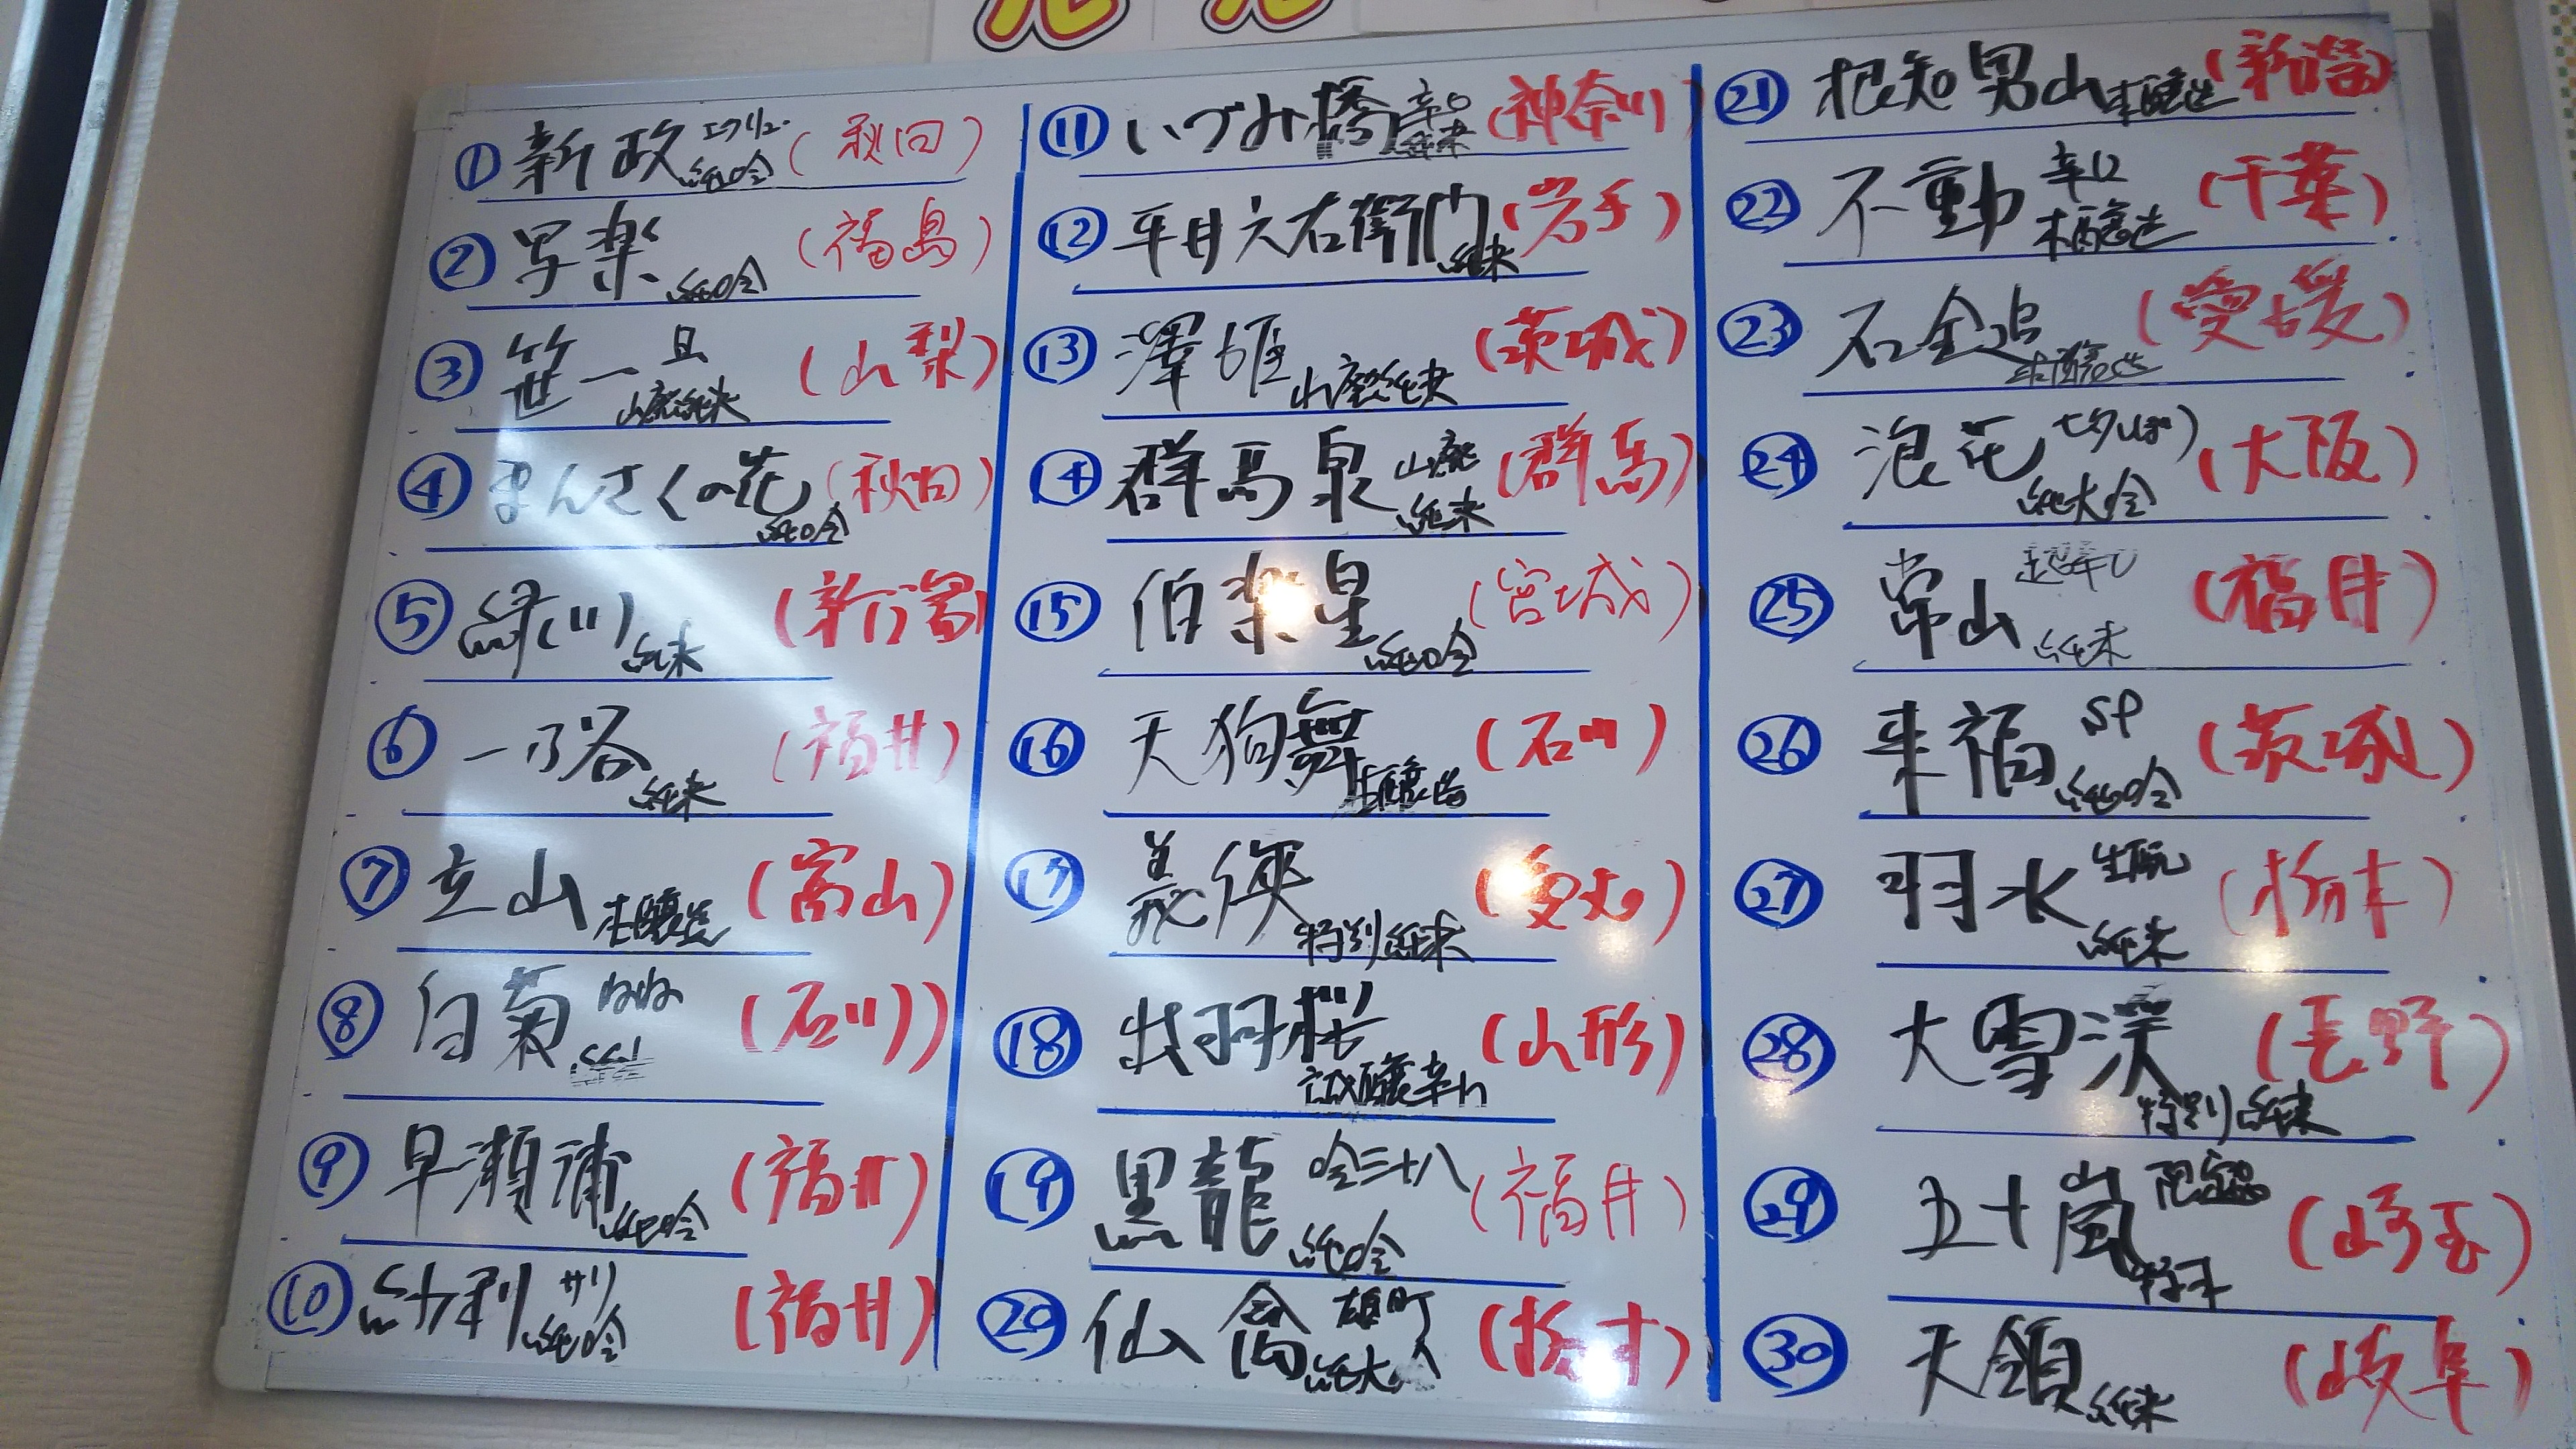 ① 新政 エクリュ 純吟 (秋田)
② 写楽 純吟 (福島)
③ 笹一 旦 山廃純米 (山梨)
④ まんさくの花 純吟 (秋田)
⑤ 緑川 純米 (新潟)
⑥ 一乃谷 純米 (福井)
⑦ 立山 本醸造 (富山)
⑧ 白菊 (石川)
⑨ 早瀬浦 純吟 (福井)
⑩ 紗利 サリ 純吟 (福井)
⑪ いづみ橋 辛口 純米 (神奈川)
⑫ 平井六右衛門 純米 (岩手)
⑬ 澤姫 山廃純米 (茨城)
⑭ 群馬泉 山廃 純米 (群馬)
⑮ 伯楽星 純吟 (宮城)
⑯ 天狗舞 本醸造 (石川)
⑰ 義侠 特別純米 (愛知)
⑱ 出羽桜 誠醸辛口 (山形)
⑲ 黒龍 吟三十八 純吟 (福井)
⑳ 仙禽 雄町 純大吟 (栃木)
㉑ 根知男山 本醸造 (新潟)
㉒ 不動 辛口 本醸造 (千葉)
㉓ 石鎚 本醸造 (愛媛)
㉔ 浪花 七夕 純大吟 (大阪)
㉕ 常山 超辛 純米 (福井)
㉖ 来福 SP 純吟 (茨城)
㉗ 羽水 生酛 純米 (栃木)
㉘ 大雪渓 特別純米 (長野)
㉙ 五十嵐 限定 (埼玉)
㉚ 天領 純米 (岐阜)